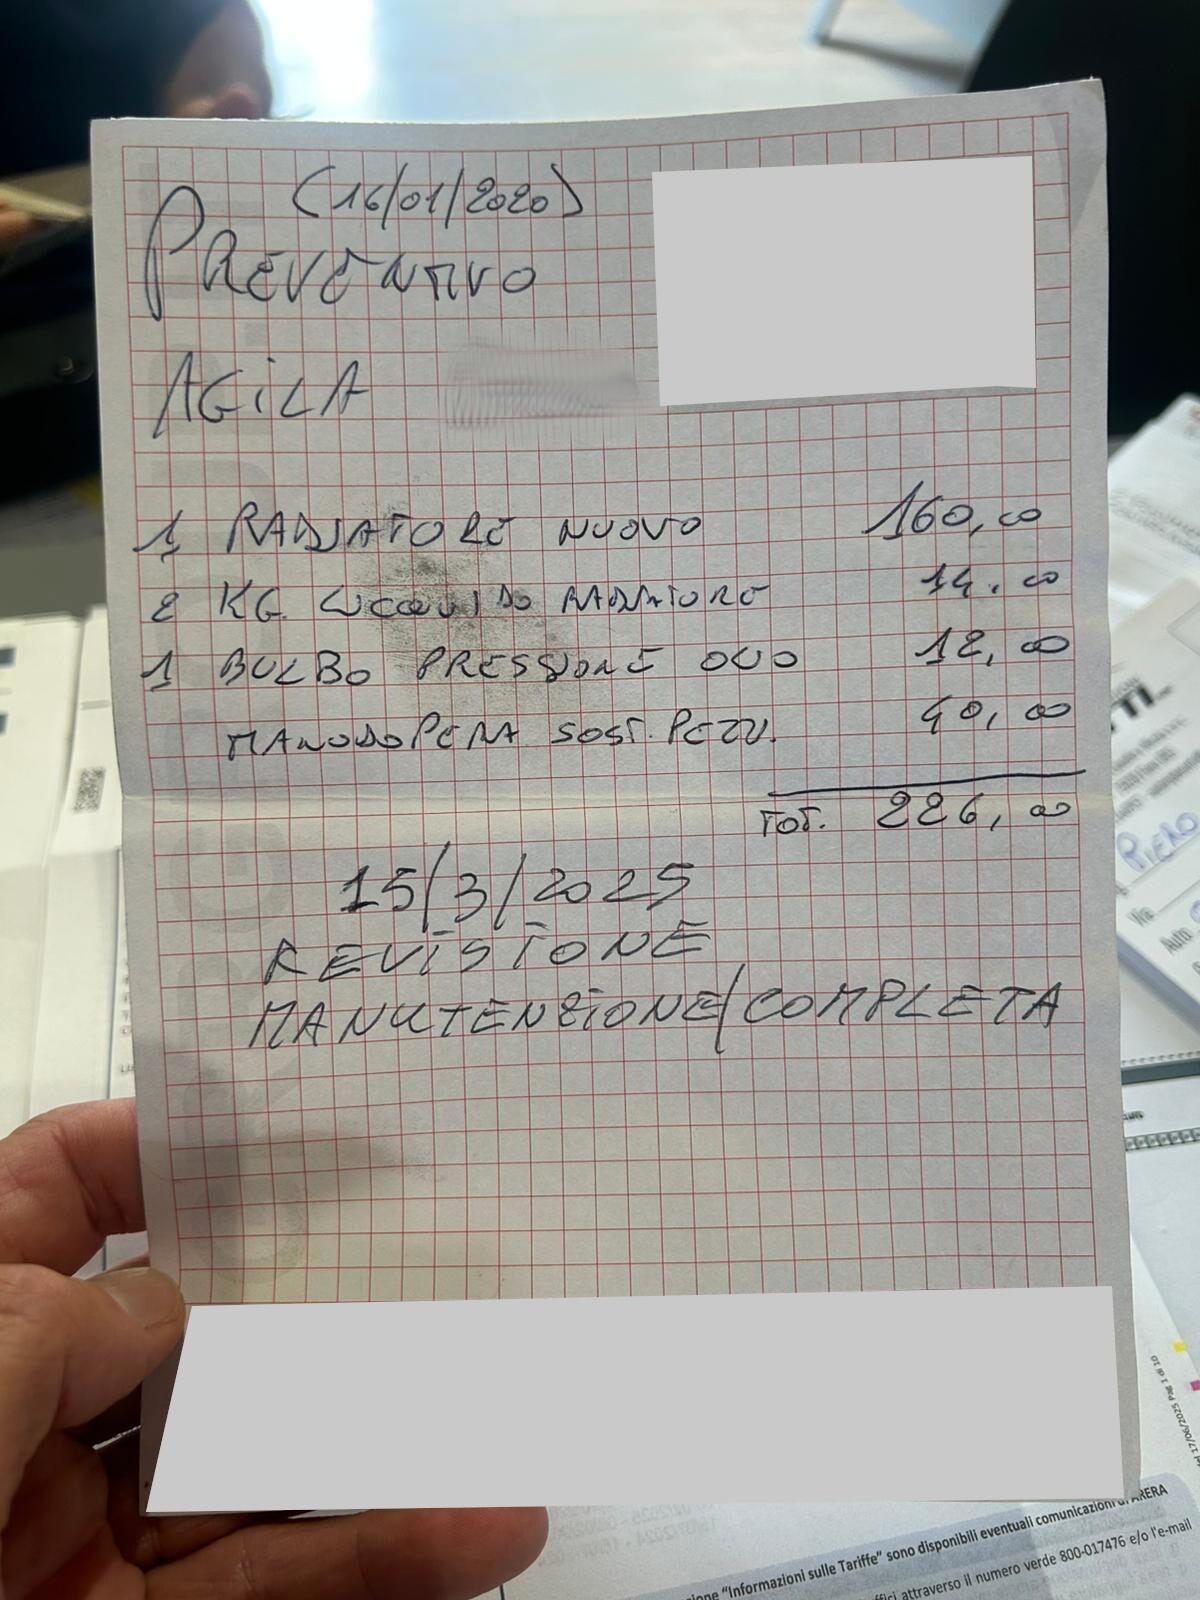 (16/01/2020)
PREVENTIVO
AGiLA
1 RADIATORE NUOVO 160,00
2 KG. LiCQUIDO RADIATORE 14.00
1 BULBO PRESSIONE OLIO 12,00
MANODOPERA SOST. PEZZI. 40,00
TOT. 226,00
15/3/2025
REVISIONE
MANUTENZIONE/COMPLETA
PIERO
Via
Auto
del 17/06/2025 Pag 1 di 10
"Informazioni sulle Tariffe" sono disponibili eventuali comunicazioni di ARERA
attraverso il numero verde 800-017476 e/o l'e-mail